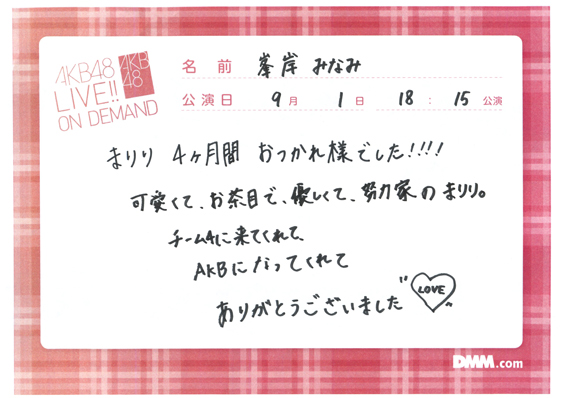 AKB48
LIVE!!
ON DEMAND
AKB
48
名 前 峯岸 みなみ
公演日 9月 1日 18:15公演
まりり 4ヶ月間 おつかれ様でした!!!!
可愛くて、お茶目で、優しくて、努力家の まりり。
チーム4に来てくれて、
AKBになってくれて
ありがとうございました
LOVE
DMM.com